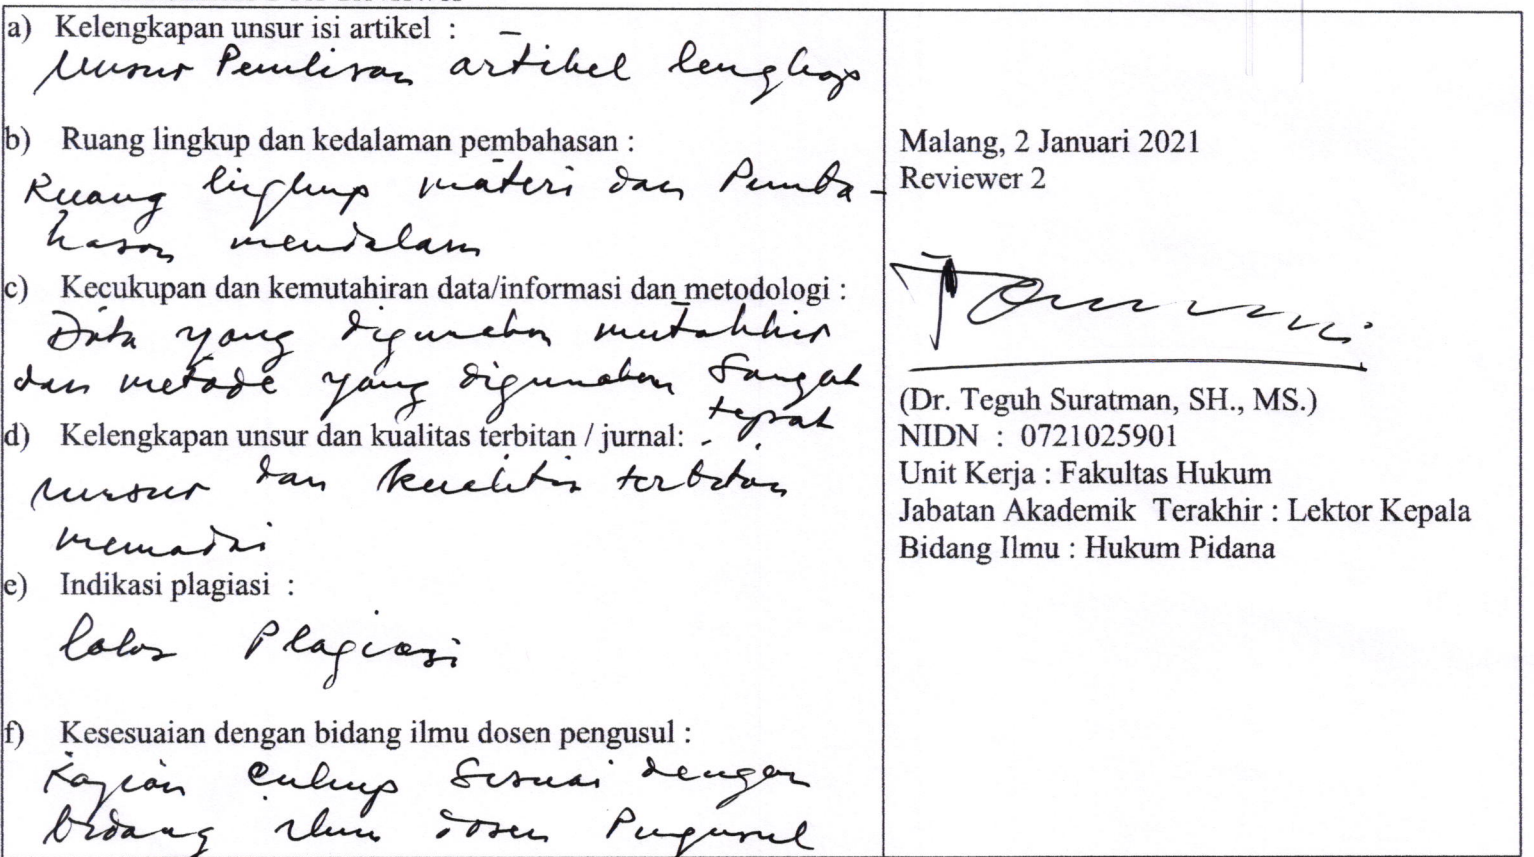 a) Kelengkapan unsur isi artikel :
Unsur Penulisan artikel lengkap
b) Ruang lingkup dan kedalaman pembahasan :
Ruang lingkup materi dan Pemba-
hasan mendalam
c) Kecukupan dan kemutahiran data/informasi dan metodologi :
Data yang digunakan mutakhir
dan metode yang digunakan Sangat
tepat
d) Kelengkapan unsur dan kualitas terbitan / jurnal:
unsur dan kualitas terbitan
memadai
e) Indikasi plagiasi :
lolos Plagiasi
f) Kesesuaian dengan bidang ilmu dosen pengusul :
Kajian cukup Sesuai dengan
bidang ilmu dosen Pengusul
Malang, 2 Januari 2021
Reviewer 2
(Dr. Teguh Suratman, SH., MS.)
NIDN : 0721025901
Unit Kerja : Fakultas Hukum
Jabatan Akademik Terakhir : Lektor Kepala
Bidang Ilmu : Hukum Pidana